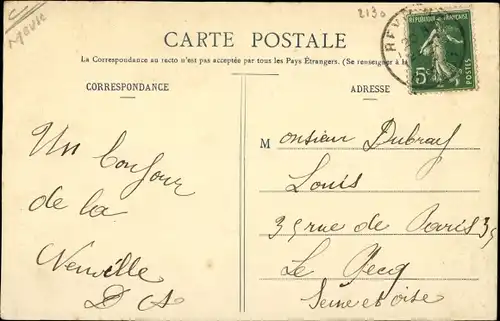 Meuse
2130
CARTE POSTALE
La Correspondance au recto n'est pas acceptée par tous les Pays Étrangers. (Se renseigner à la
CORRESPONDANCE
ADRESSE
REPUBLIQUE FRANÇAISE
5c
POSTES
REVI
Un bonjour
de la
Neuville
D
Monsieur Dubray
Louis
35 rue de Paris 35
Le Pecq
Seine et Oise